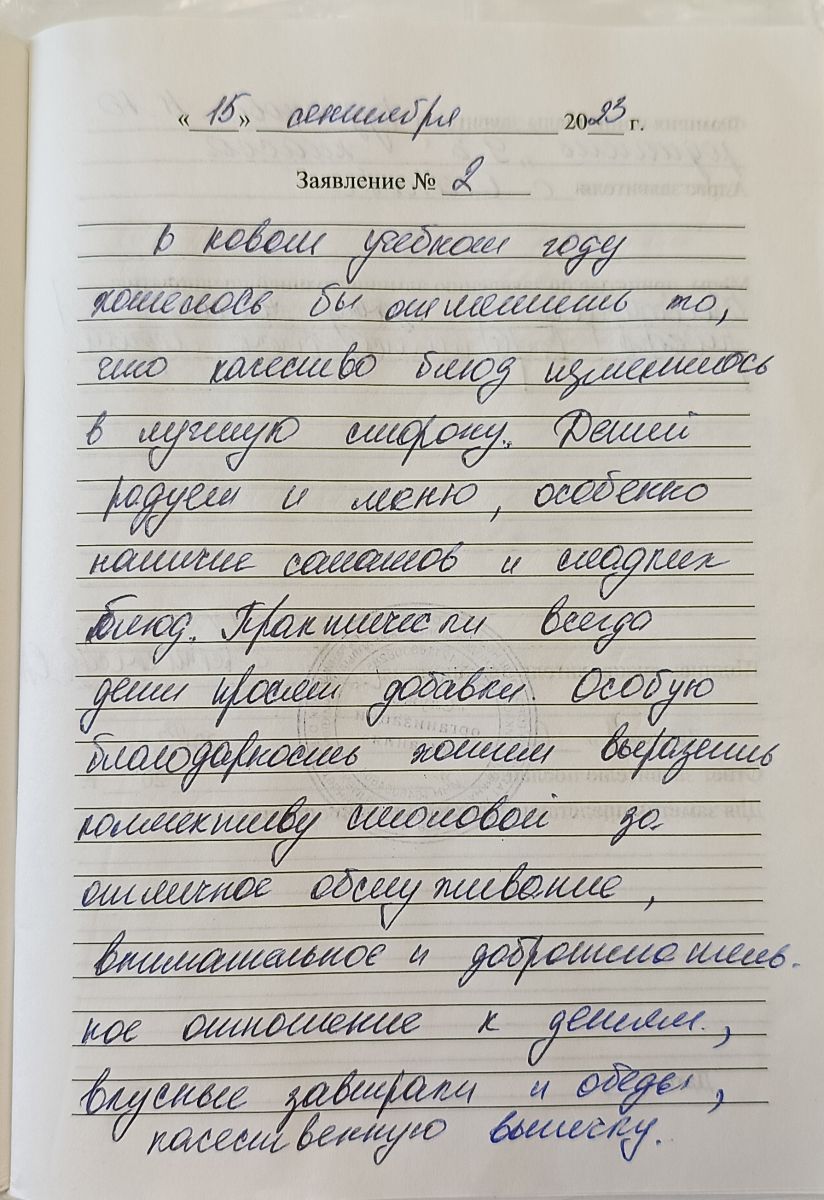 « 15 » сентября 2023 г.
Заявление № 2
В новом учебном году
хотелось бы отметить то,
что качество блюд изменилось
в лучшую сторону. Детей
радует и меню, особенно
наличие салатов и сладких
блюд. Практически всегда
дети просят добавки. Особую
благодарность хотим выразить
коллективу столовой за
отличное обслуживание,
внимательное и доброжелатель-
ное отношение к детям,
вкусные завтраки и обеды,
качественную выпечку.